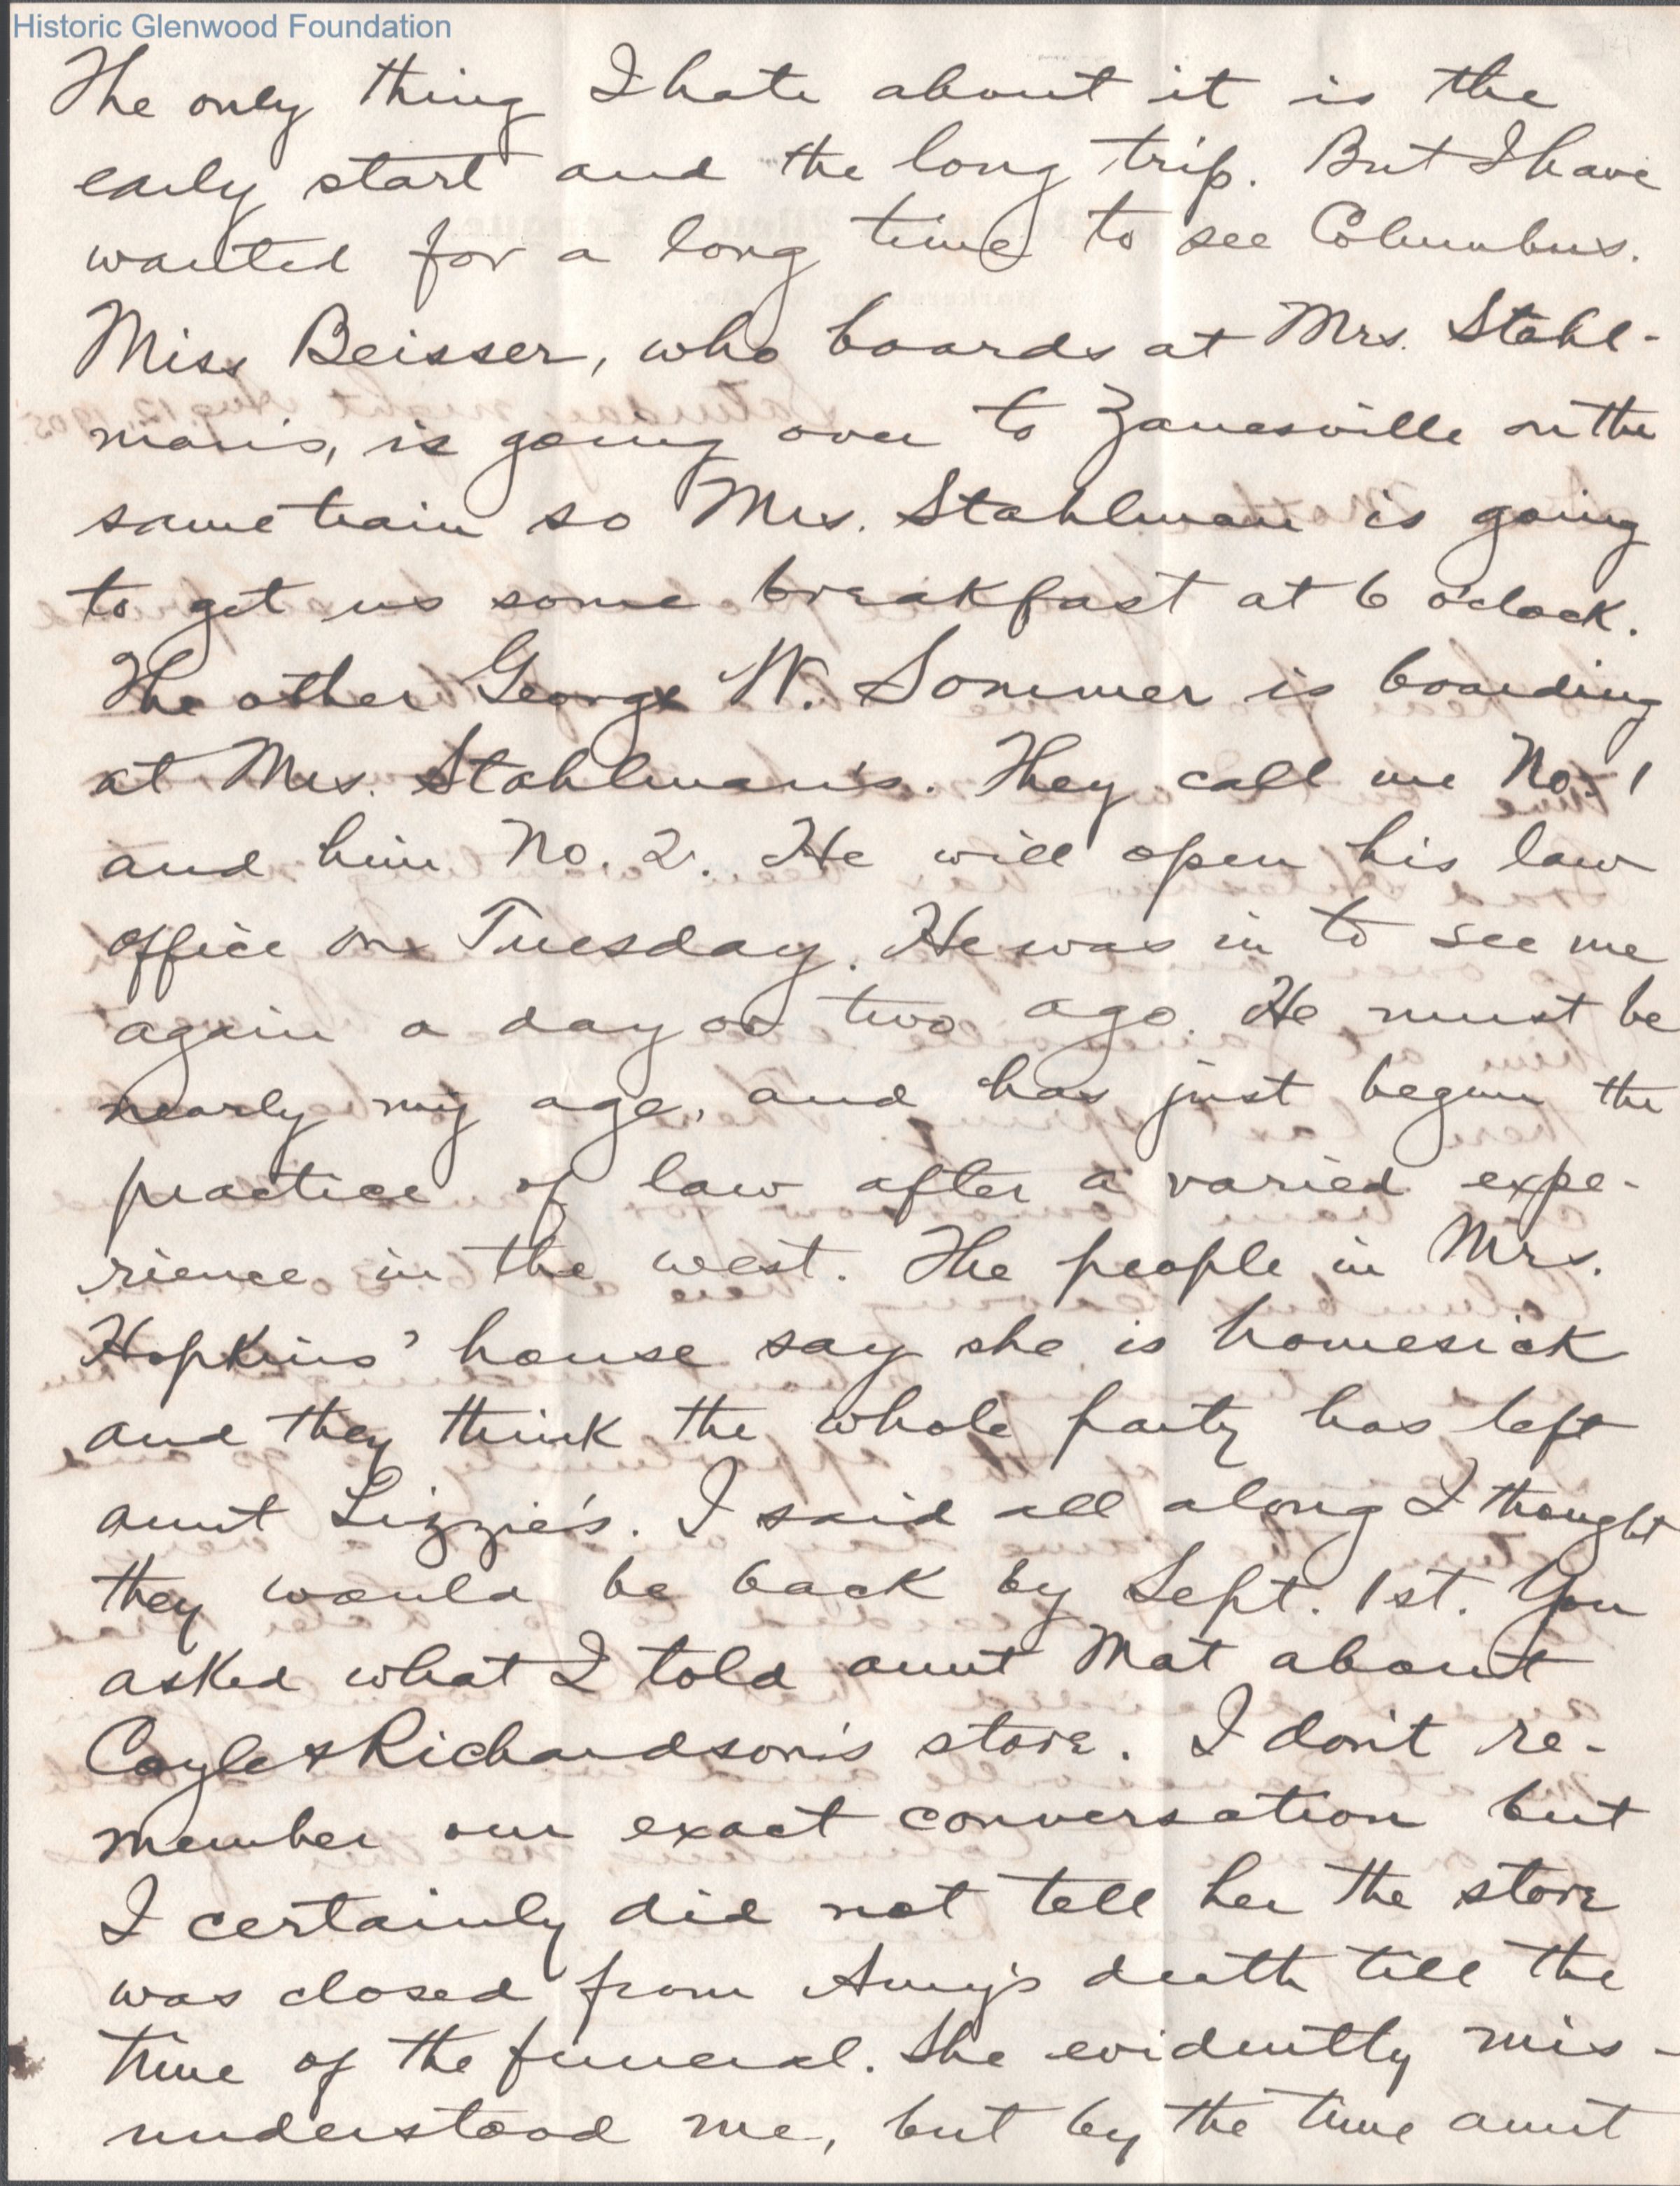 Historic Glenwood Foundation
The only thing I hate about it is the
early start and the long trip. But I have
wanted for a long time to see Columbus.
Miss Beisser, who boards at Mrs. Stahl-
man's, is going over to Zanesville on the
same train so Mrs. Stahlman is going
to get us some breakfast at 6 o'clock.
The other George W. Sommer is boarding
at Mrs. Stahlman's. They call me No. 1
and him No. 2. He will open his law
office on Tuesday. He was in to see me
again a day or two ago. He must be
nearly my age, and has just begun the
practice of law after a varied expe-
rience in the west. The people in Mrs.
Hopkins' house say she is homesick
and they think the whole party has left
aunt Lizzie's. I said all along I thought
they would be back by Sept. 1st. You
asked what I told aunt Mat about
Coyle & Richardson's store. I don't re-
member our exact conversation but
I certainly did not tell her the store
was closed from Amy's death till the
time of the funeral. She evidently mis-
understood me, but by the time aunt